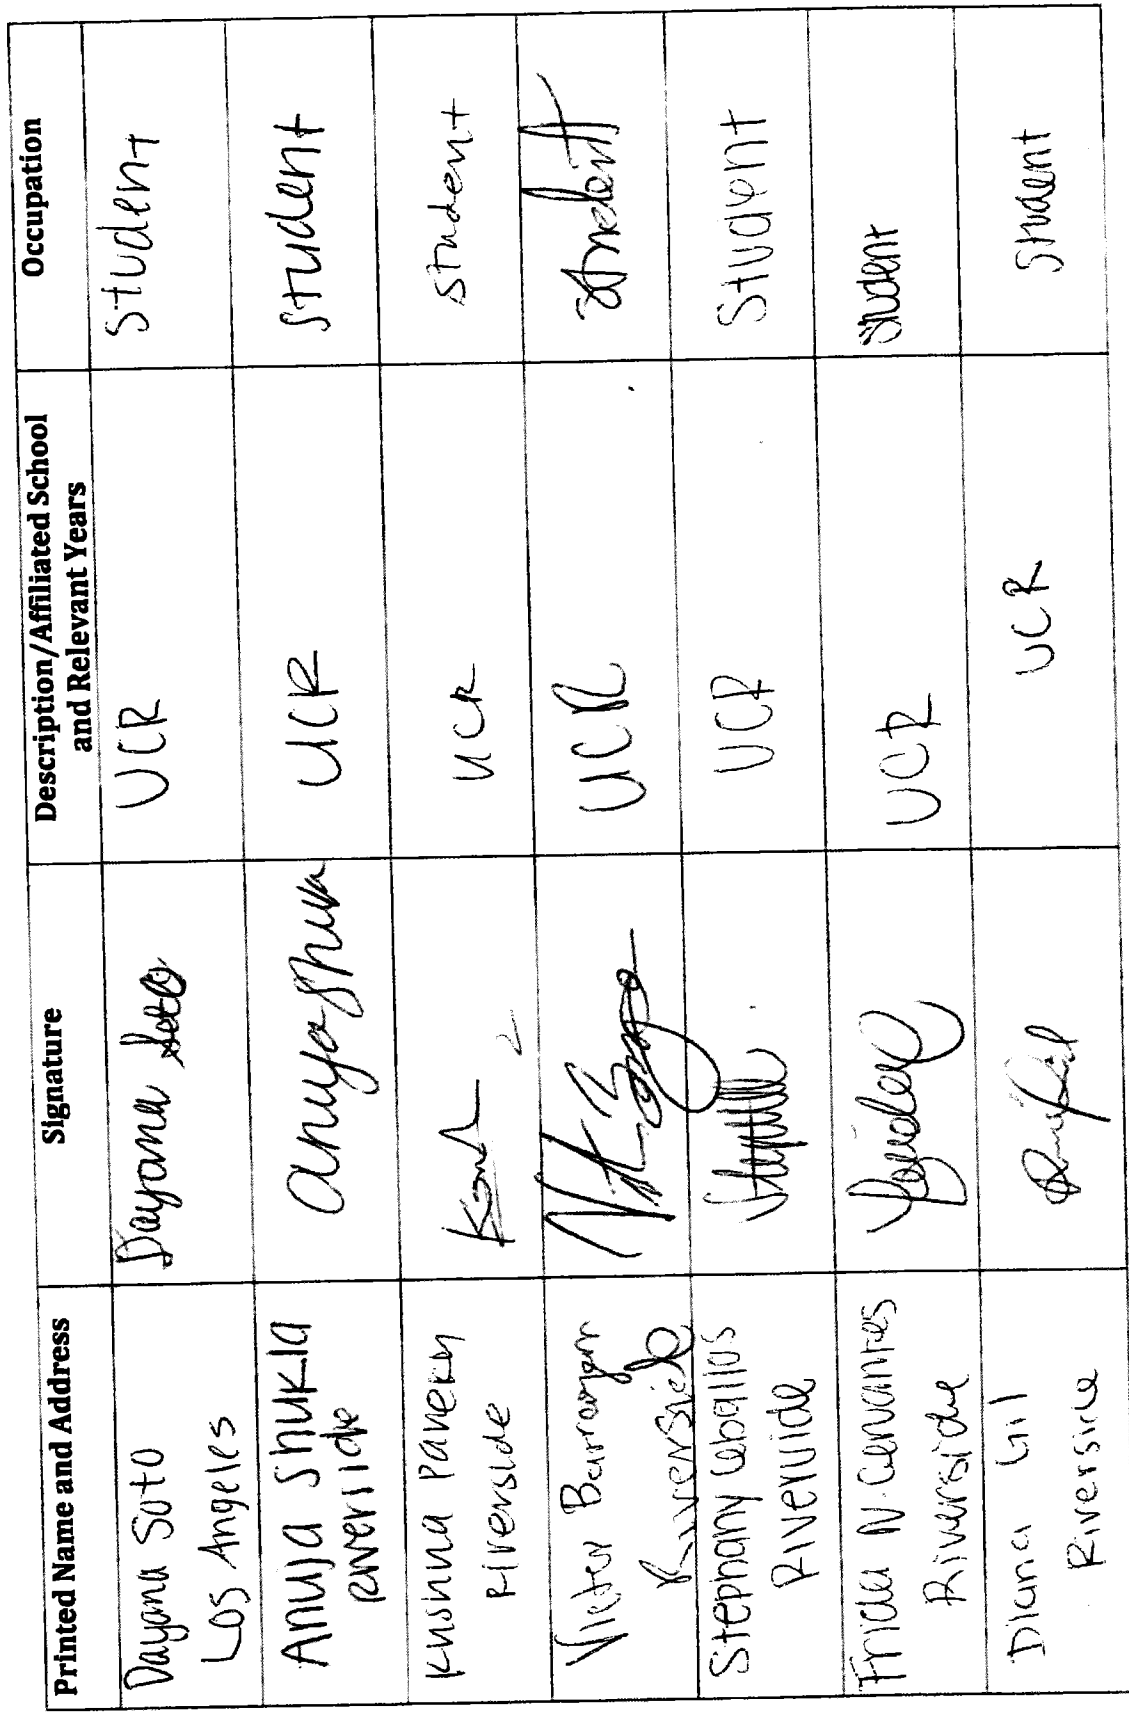 Printed Name and Address Signature Description/Affiliated School and Relevant Years Occupation
Dayana Soto
Los Angeles
Dayana Soto
UCR
Student
Anuja Shukla
Riverside
Anuja Shukla
UCR
Student
Riverside
UCR
Student
Victor Barragan
Riverside
UCR
Student
Stephany Ceballos
Riverside
UCR
Student
Frida N. Cervantes
Riverside
UCR
Student
Diana Gil
Riverside
UCR
Student